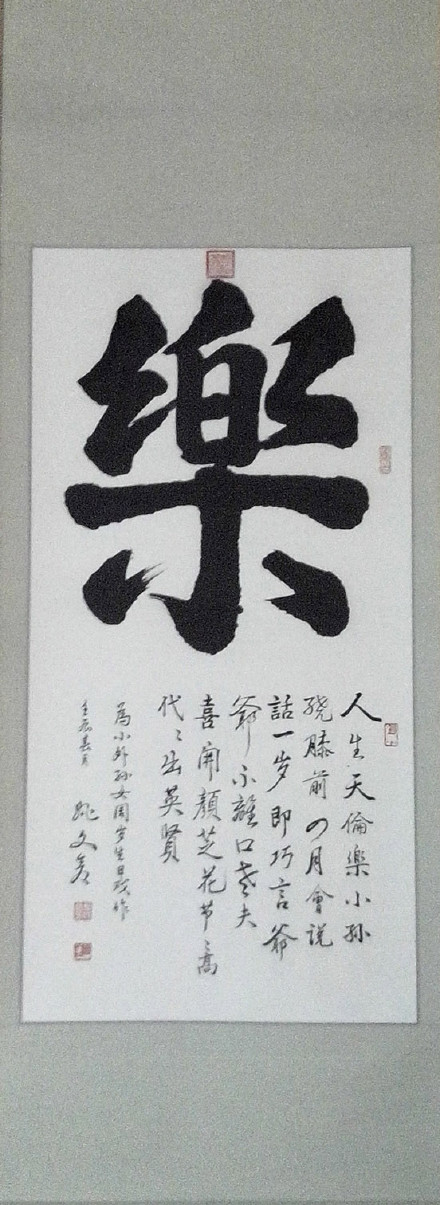 樂
人生天倫樂小孙
绕膝前四月會说
話一岁即巧言爺
爺不離口老夫
喜開顏芝花节〻高
代〻出英賢
為小外孙女周岁生日戏作
壬辰春月
姚文